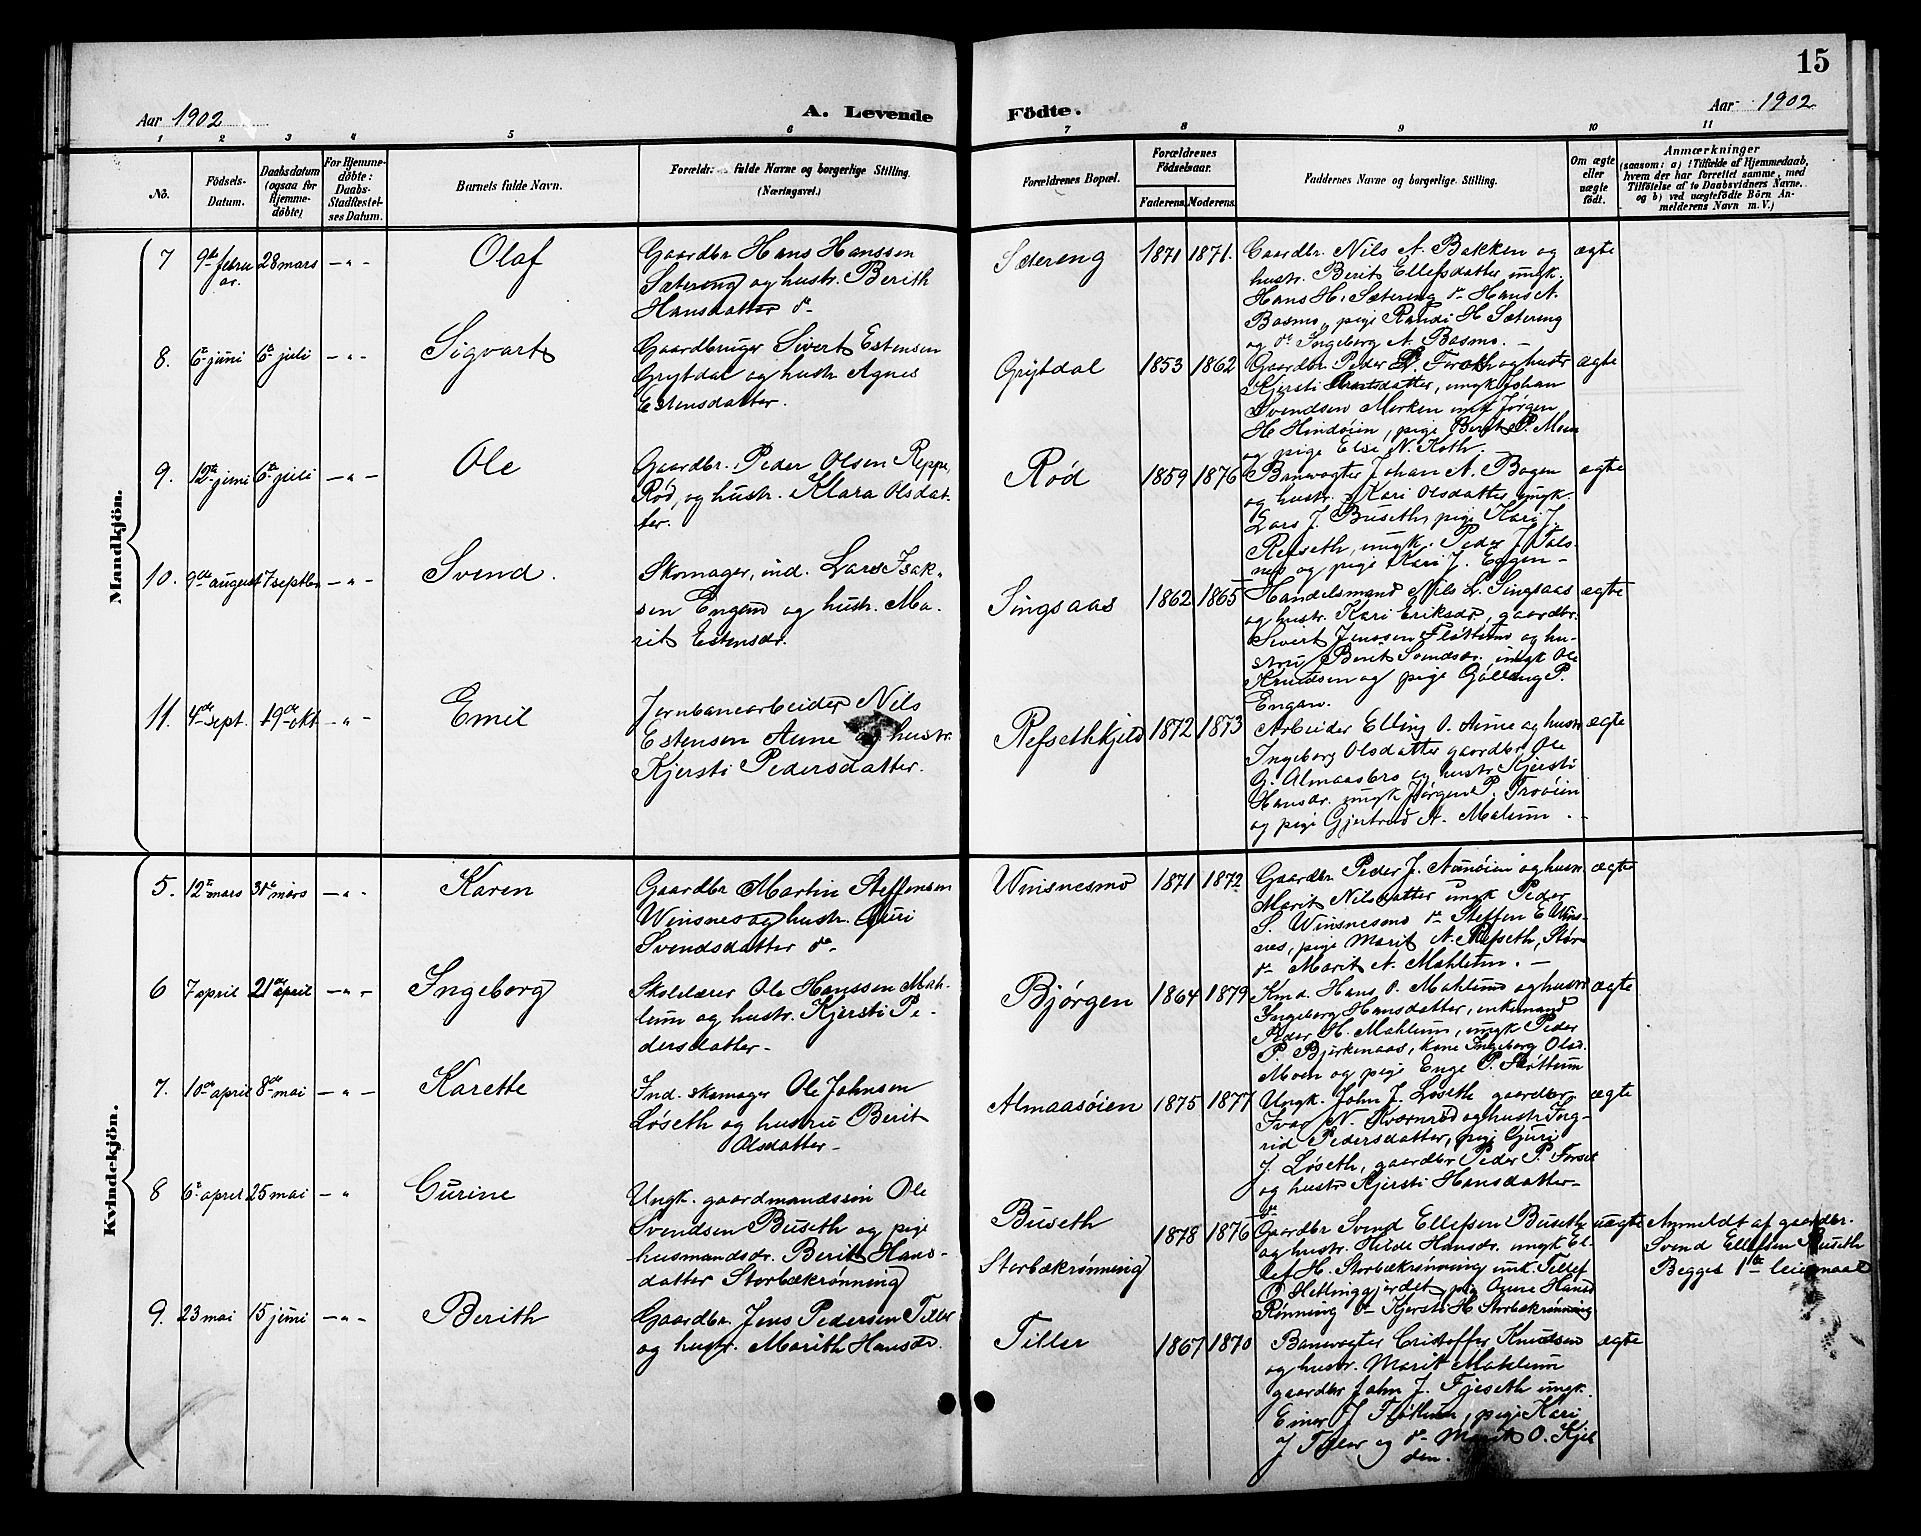 15
Aar 1902
A. Levende
Födte.
Aar 1902
1 2 3 4 5 6 7 8 9 10 11
No.
Födsels-
Datum.
Daabsdatum
(ogsaa for
Hjemme-
döbte)
For Hjemme-
döbte:
Daabs-
Stadfæstel-
ses Datum.
Barnets fulde Navn.
fulde Navne og borgerlige Stilling.
(Næringsvei.)
Forældrenes Bopæl.
Forældrenes
Födselsaar.
Faderens. Moderens.
Faddernes Navne og borgerlige Stilling.
Om ægte
eller
uægte
födt.
Anmærkninger
(saasom: a) i Tilfælde af Hjemmedaab,
hvem der har forrettet samme, med
Tilföielse af to Daabsvidners Navne.
og b) ved uægtefödte Börn An-
melderens Navn m. V.)
Mandkjön.
7 9de febru
ar. 28 mars – „ -
Olaf
Gaardbr Hans Hanssen
Sætereng og hustr. Berith
Hansdatter do
Sætereng
1871 1871.
Gaardbr. Nils A. Bakken og
hustr. Berit Ellefsdatter ungk.
Hans H. Sætereng do Hans A.
Basmo, pige Randi H Sætereng
og do Ingeborg A. Basmo. –
ægte
8. 6te juni 6te juli – „ -
Sigvart
Gaardbruger Sivert Estensen
Grytdal og hustr Agnes
Estensdatter.
Grytdal
1853 1862
Gaardbr. Peder Foroth og hustr
Kjersti datter, ungk Johan
Svendsen Morken ungk Jørgen
H Hindøien, pige Berit P. Moen
og pige Else N. Koth.
ægte
9. 12te juni 6te juli – „ –
Ole
Gaardbr. Peder Olsen Reppe,
Rød, og hustr. Klara Olsdat-
ter.
Rød
1859 1876
Banevogter Johan A. Bogen
og hustr. Kari Olsdatter ungk.
Lars J. Buseth, pige Kari J.
Refseth, ungk. Peder J. Vols-
nes og pige Kari J. Eggen –
ægte
10. 9de august 7 septbr – „ -
Svend.
Skomager, ind. Lars Isak-
sen Engan og hustr. Ma-
rit Estensdr.
Singsaas
1862 1865
Handelsmand Nils L. Singsaas
og hustr. Kari Eriksdr, gaardbr.
Sivert Jenssen Fløttum og hu-
stru Berit Svendsdr. ungk Ole
Knudsen og pige Gølling P.
Engan.
ægte
11. 4de sept. 19de okt – „ -
Emil
Jernbanearbeider Nils
Estensen Aune og hustr.
Kjersti Pedersdatter.
Refsethkjeld
1872 1873
Arbeider Elling O. Aune og hustr
Ingeborg Olsdatter gaardbr Ole
G. Almaasbro og hustr Kjersti
Hansdr. ungk Jørgen P. Troøien
og pige Gjertrud A. Malum . –
ægte
Kvindekjön.
5. 12te mars 31te mars – „ -
Karen
Gaardbr Martin Steffensen
Winsnes og hustr. Guri
Svendsdatter do
Winsnesmo
1871 1872
Gaardbr. Peder J. Aunøien og hustr
Marit Nilsdatter ungk Peder
S. Winsnesmo do Steffen E Wins-
nes, pige Marit N. Refseth, Stør
do Marit A. Mahlum . –
ægte
6 7 april 21de april – „ –
Ingeborg
Skolelærer Ole Hanssen Mah-
lum og hustr. Kjersti Pe-
dersdatter –
Bjørgen
1864 1879
Kmd. Hans O. Mahlum og hustr
Ingeborg Hansdatter, enkemand
Peder H. Mahlum, ungk Peder
P. Bjerkenaas, kone Ingeborg Olsd.
Moen og pige Enge P. Fløttum
ægte
7. 10de april 8de mai – „ –
Karette
Ind. skomager Ole Johnsen
Løseth og hustru Berit
Olsdatter –
Almaasøien
1875 1877
Ungk. John J. Løseth gaardbr
Ivar N. Kværnrød og hustr Ing-
rid Pedersdatter, pige Guri
J. Løseth, gaardbr Peder P. Forset
og hustr Kjersti Hansdatter –
ægte
8 6te april 25 mai – „
Gurine
Ungk. gaardmandssøn Ole
Svendsen Buseth og pige
husmandsdr. Berit Hans-
datter Storbækrønning
Buseth
Storbækrønning
1878 1876
Gaardbr Svend Ellefsen Buseth
og hustr. Hilde Hansdr. ungk El-
lef H. Storbækrønning ungk. Tillef
O Hellinggjerdet pige Anne Hansd
Rønning do Kjersti H Storbækrønning
uægte
Anmeldt af gaardbr.
Svend Ellefsen Buseth
Begges 1ste leiermaal
9. 23 mai 15 juni – „ -
Berith
Gaardbr. Jens Pedersen Tiller
og hustr. Marith Hansdr.
Tiller
1867 1870
Banevogter Cristoffer Knudsen
og hustr. Marit Mahlum
gaardbr John J. Fjeseth ungk.
Einer J Fløttum, pige Kari
J Tiller og do Marit O. Kjel
den.
ægte